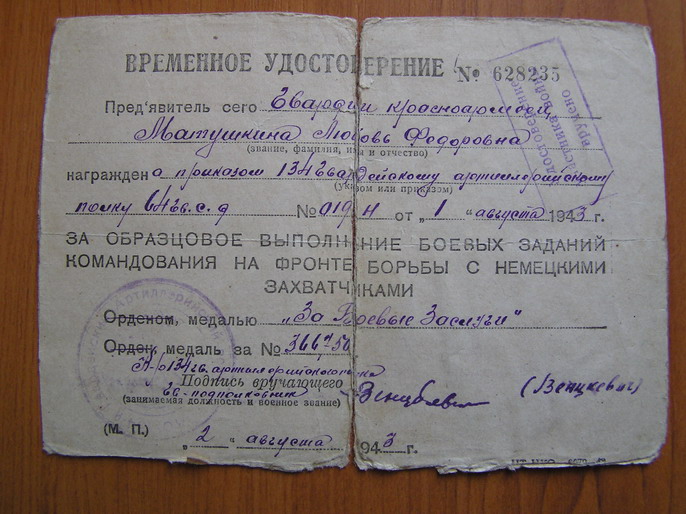 ВРЕМЕННОЕ УДОСТОВЕРЕНИЕ № 628235
Пред'явитель сего Гвардии красноармеец
Матушкина Любовь Федоровна
(звание, фамилия, имя и отчество)
награждена приказом 134 гвардейскому артиллерийскому
(указом или приказом)
полку 64 гв. с. д № 019/н от "1" августа 1943 г.
ЗА ОБРАЗЦОВОЕ ВЫПОЛНЕНИЕ БОЕВЫХ ЗАДАНИЙ
КОМАНДОВАНИЯ НА ФРОНТЕ БОРЬБЫ С НЕМЕЦКИМИ
ЗАХВАТЧИКАМИ
Орденом, медалью "За Боевые Заслуги"
Орден, медаль за №
134 гв. артиллерийского полка
Подпись вручающего
гв-подполковник
(занимаемая должность и военное звание)
(М. П.) "2" августа 1943 г.
удостоверение
участника войны
вручено